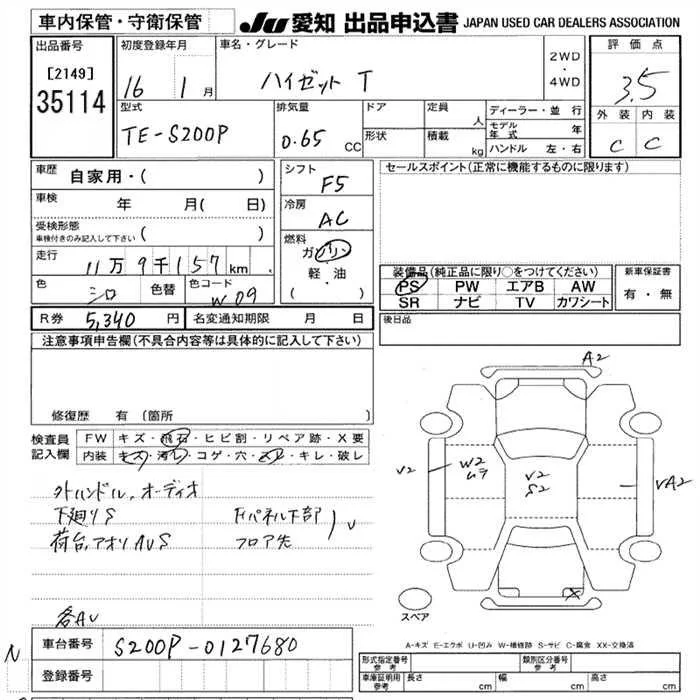 車内保管・守衛保管
JU 愛知 出品申込書 JAPAN USED CAR DEALERS ASSOCIATION
出品番号
[2149]
35114
初度登録年月
16 1月
車名・グレード
ハイゼット T
2WD
・
4WD
評価点
3.5
外装 内装
C C
型式
TE-S200P
排気量
0.65 CC
ドア
形状
定員 人
積載 kg
ディーラー・並行
モデル年式 年
ハンドル 左・右
車歴
自家用・( )
車検
年 月( 日)
受検形態
車検付きのみ記入して下さい ( )
走行
11万9千157km
色
シロ
色替
色コード
W09
シフト
F5
冷房
AC
燃料
ガソリン
軽・油
( ・ )
セールスポイント(正常に機能するものに限ります)
装備品(純正品に限り○をつけてください)
PS PW エアB AW
SR ナビ TV カワシート
新車保証書
有・無
R券 5,340 円 名変通知期限 月 日
後日品
注意事項申告欄(不具合内容等は具体的に記入して下さい)
修復歴 有(箇所 )
検査員
記入欄
FW キズ・飛石・ヒビ割・リペア跡・X要
内装 キズ・汚れ・コゲ・穴・スレ・キレ・破レ
外ハンドル、オーディオ
下廻りS
荷台、アオリAUS
下パネル下部
フロア先
U
各AU
A2
V2
W2
ムラ
V2
S2
VA2
X
スペア
A-キズ E-エクボ U-凹み W-補修跡 S-サビ C-腐食 XX-交換済
N
車台番号 S200P-0127680
登録番号
形式指定番号
参考
類別区分番号
参考
車庫証明用
参考
長さ cm 幅 cm 高さ cm